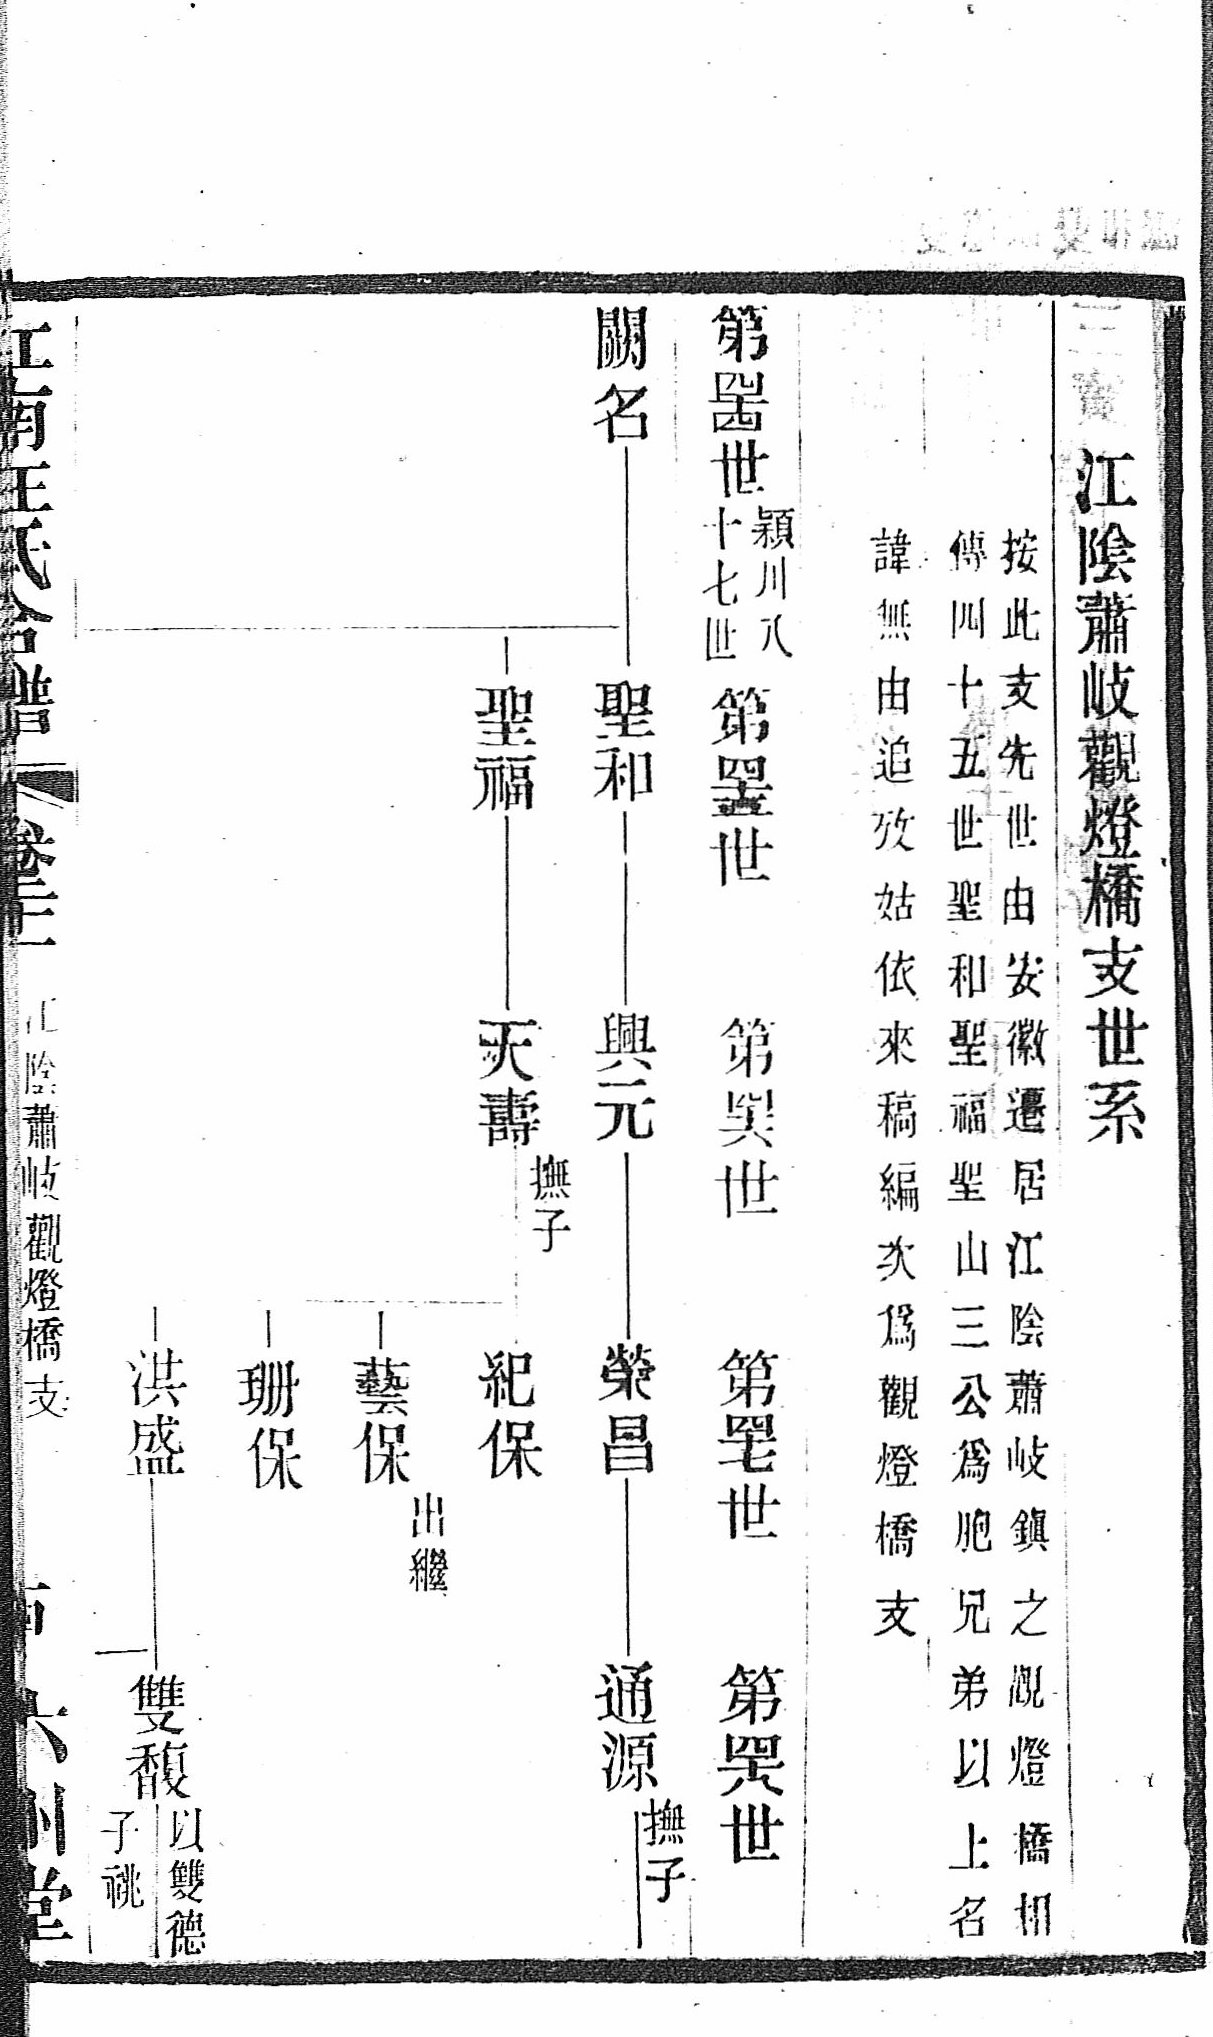 江陰蕭岐觀燈橋支世系
按此支先世由安徽遷居江陰蕭岐鎮之觀燈橋相
傳四十五世聖和聖福聖山三公爲胞兄弟以上名
諱無由追攷姑依來稿編次爲觀燈橋支
第四十四世 潁川八十七世
第四十五世
第四十六世
第四十七世
第四十八世
闕名
聖和
興元
榮昌
通源 撫子
聖福
天壽 撫子
紀保
藝保 出繼
珊保
洪盛
雙馥 以雙德子祧
江南汪氏合譜
卷三十一
江陰蕭岐觀燈橋支
六州堂